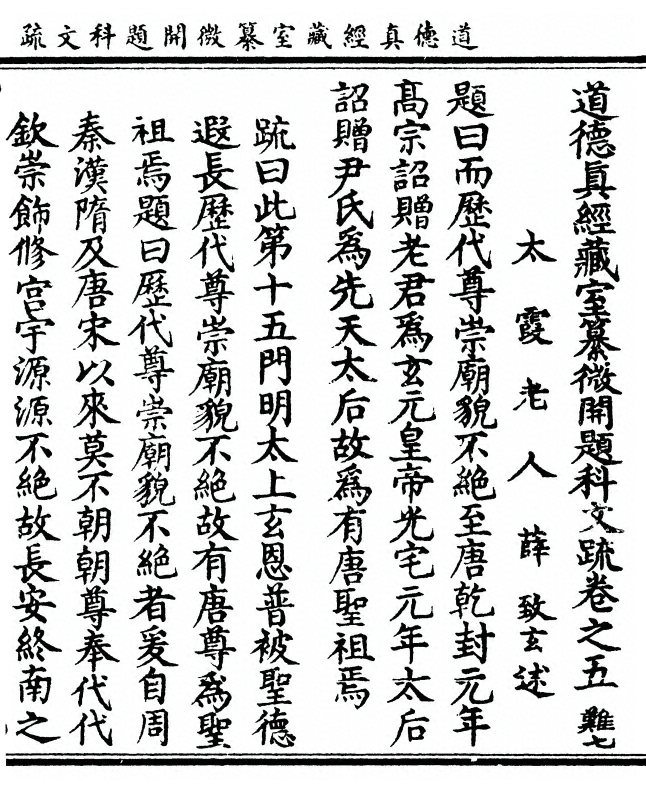 道德真經藏室纂微開題科文疏
道德眞經藏室纂微開題科文疏卷之五 難七
太霞老人薛致玄述
題曰而歷代尊崇廟貌不絶至唐乾封元年
髙宗詔贈老君爲玄元皇帝光宅元年太后
詔贈尹氏爲先天太后故爲有唐聖祖焉
疏曰此第十五門明太上玄恩普被聖德
遐長歷代尊崇廟貌不絶故有唐尊爲聖
祖焉題曰歷代尊崇廟貌不絶者爰自周
秦漢隋及唐宋以來莫不朝朝尊奉代代
欽崇飾修宫宇源源不絶故長安終南之